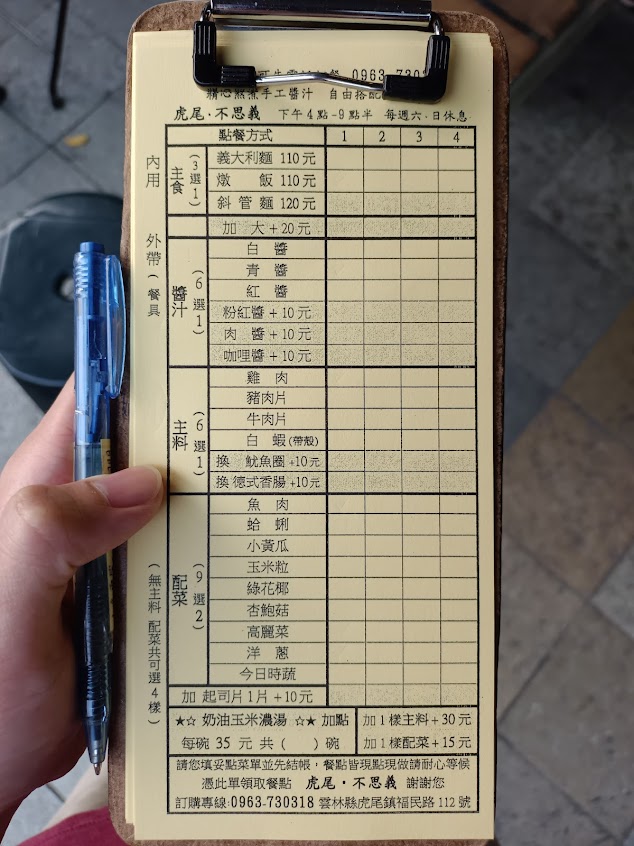 0963-730
精心熬煮手工醬汁 自由搭配
虎尾·不思義 下午4點-9點半 每週六·日休息
點餐方式 1 2 3 4
內用 外帶(餐具
(無主料 配菜共可選4樣)
主食 (3選1)
義大利麵 110元
燉飯 110元
斜管麵 120元
加大+20元
醬汁 (6選1)
白醬
青醬
紅醬
粉紅醬+10元
肉醬+10元
咖哩醬+10元
主料 (6選1)
雞肉
豬肉片
牛肉片
白蝦(帶殼)
換 魷魚圈+10元
換德式香腸+10元
配菜 (9選2)
魚肉
蛤蜊
小黃瓜
玉米粒
綠花椰
杏鮑菇
高麗菜
洋蔥
今日時蔬
加 起司片1片+10元
★☆ 奶油玉米濃湯 ☆★ 加點
每碗 35 元 共 ( ) 碗
加1樣主料+30元
加1樣配菜+15元
請您填妥點菜單並先結帳，餐點皆現點現做請耐心等候
憑此單領取餐點 虎尾·不思義 謝謝您
訂購專線:0963-730318 雲林縣虎尾鎮福民路112號